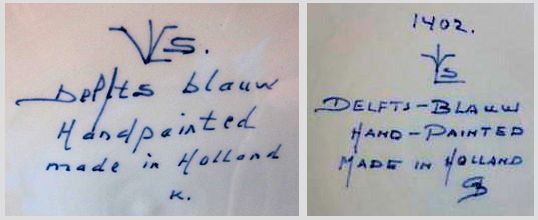 VS.
Delfts blauw
Handpainted
made in Holland
K.
1402.
VS
DELFTS-BLAUW
HAND-PAINTED
MADE IN HOLLAND